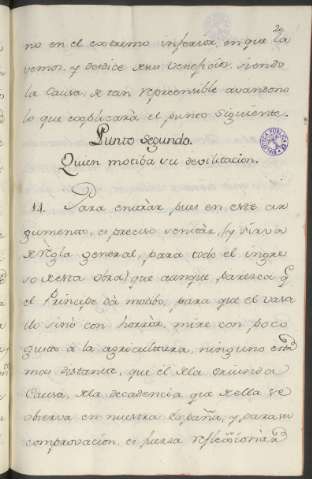 no en el extremo inferior, en que la
vemos, y desdice de su beneficio, siendo
la Causa, de tan reprensible abandono
lo que explicará el punto siguiente.
Punto segundo.
Quien motiba su devilitacion.
11. Para entrar pues en este ar
gumento, es preciso sentar, (y sirva
de regla general, para todo el ingre
so de esta obra) que aunque paresca q.e
el Principe dá motibo, para que el vasa
llo sinó con horror, mire con poco
gusto á la agricultura, ninguno está
mas distante, que el de la
Causa, de la decadencia que de ella se
observa en nuestra España, y para su
comprovacion, es fuerza reflexionar